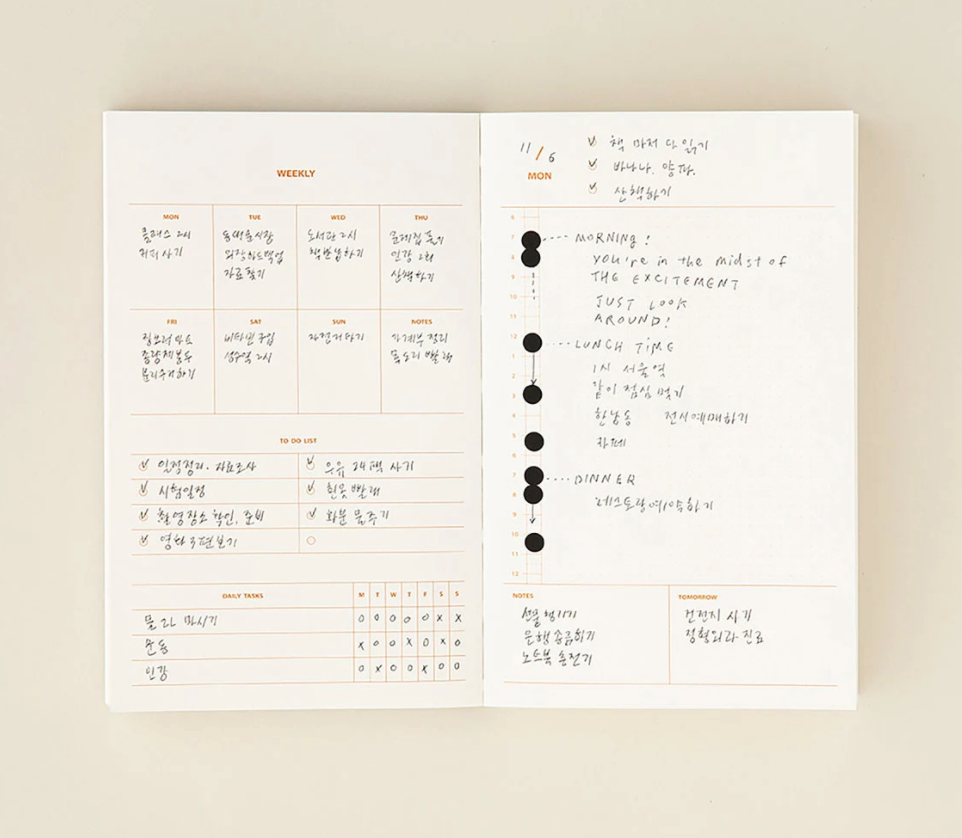 WEEKLY
MON
TUE
WED
THU
커피 사기
자료찾기
도서관 2시
책 반납하기
문제집 풀기
인강 2회
산책하기
FRI
SAT
SUN
NOTES
종량제봉투
분리수거하기
비타민 구입
성수역 2시
자전거 타기
가계부 정리
목도리 빨래
TO DO LIST
일정정리. 자료조사
시험일정
촬영장소 확인. 준비
영화 3편 보기
우유 24팩 사기
흰옷 빨래
화분 물주기
DAILY TASKS
M T W T F S S
물 2L 마시기
O O O O O X X
운동
X O O X O X O
인강
O X O O X O O
11/6
MON
책 마저 다 읽기
바나나. 양파.
산책하기
6
7
8
9
10
11
12
1
2
3
4
5
6
7
8
9
10
11
12
MORNING!
YOU'RE in the midst of
THE EXCITEMENT
JUST LOOK
AROUND!
LUNCH TIME
1시 서울역
같이 점심 먹기
한남동 전시예매하기
카페
DINNER
레스토랑예약하기
NOTES
선물 챙기기
은행 송금하기
노트북 충전기
TOMORROW
건전지 사기
정형외과 진료